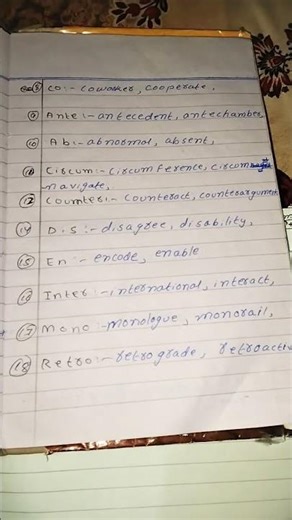 ⑧ Co:- Coworker, cooperate,
⑨ Ante:- antecedent, antechamber,
⑩ Ab:- abnormal, absent,
⑪ Circum:- circumference, circum
navigate,
⑫ Counter:- counteract, counterargument
⑭ Dis:- disagree, disability,
⑮ En:- encode, enable
⑯ Inter:- international, interact,
⑰ Mono:- monologue, monorail,
⑱ Retro:- retrograde, retroactive